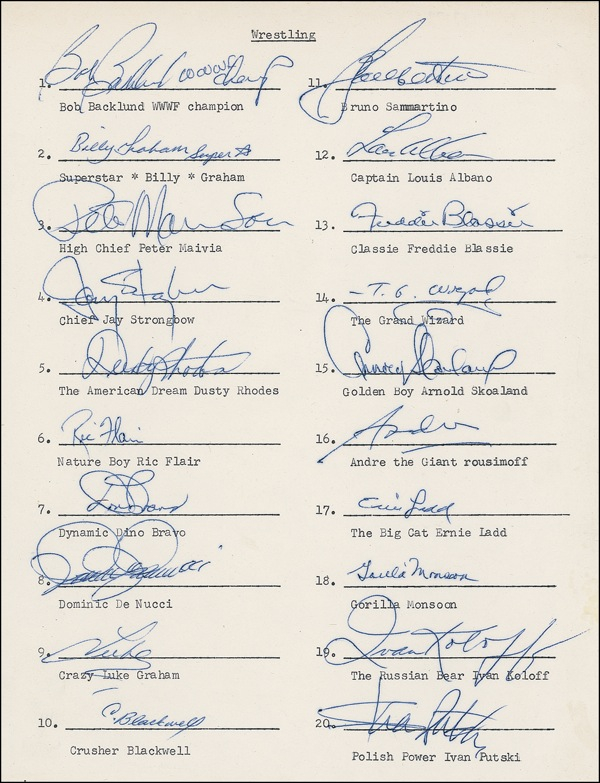 Wrestling
1. Bob Backlund WWWF Champ
Bob Backlund WWWF champion
2. Billy Graham Super
Superstar * Billy * Graham
3. Pete
High Chief Peter Maivia
4. Jay
Chief Jay Strongbow
5. Dusty Rhodes
The American Dream Dusty Rhodes
6. Ric Flair
Nature Boy Ric Flair
7. Dino Bravo
Dynamic Dino Bravo
8.
Dominic De Nucci
9. Luke
Crazy Luke Graham
10. C Blackwell
Crusher Blackwell
11.
Bruno Sammartino
12. Lou Albano
Captain Louis Albano
13. Freddie Blassie
Classie Freddie Blassie
14. T. G. Wizard
The Grand Wizard
15. Skoaland
Golden Boy Arnold Skoaland
16. Andre
Andre the Giant rousimoff
17. Ernie Ladd
The Big Cat Ernie Ladd
18. Gorilla Monsoon
Gorilla Monsoon
19. Ivan Koloff
The Russian Bear Ivan Koloff
20. Ivan Putski
Polish Power Ivan Putski